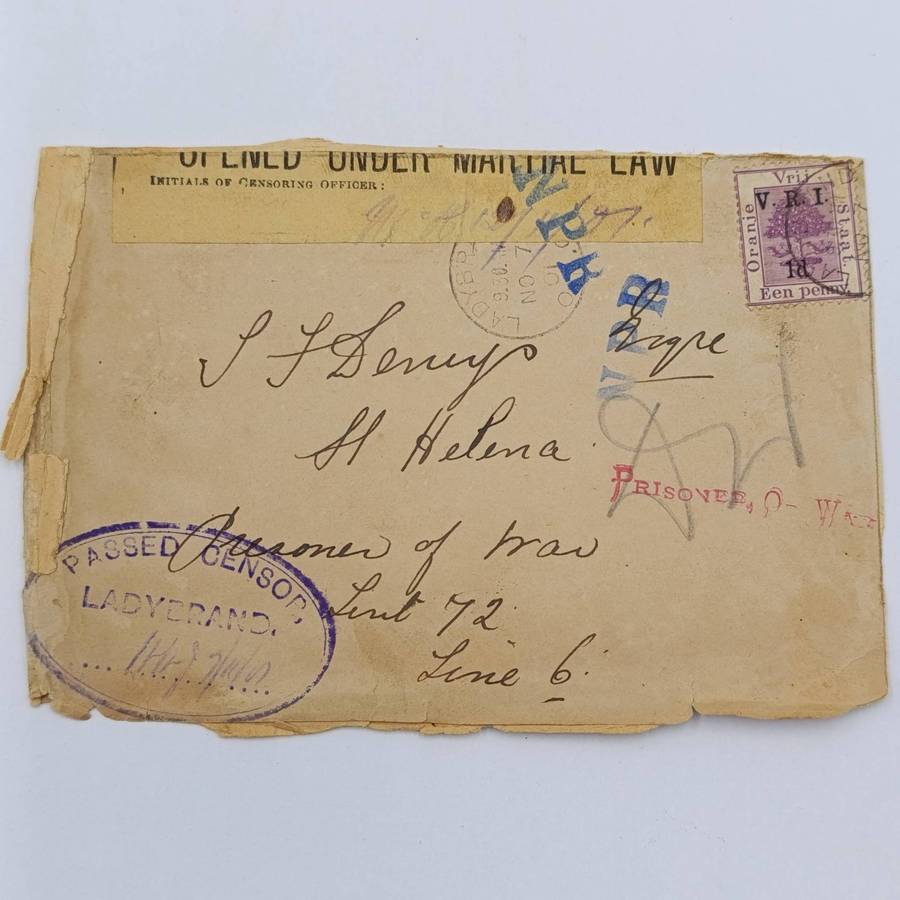 OPENED UNDER MARTIAL LAW
INITIALS OF CENSORING OFFICER:
Vrij
Oranje
Staat
V. R. I.
1d.
Een penny
LADYBR
9.30
NO 7
S F Denys Esqre
St Helena
PRISONER, O- WAR
Prisoner of War
Tent 72
Line 6
PASSED CENSOR,
LADYBRAND.